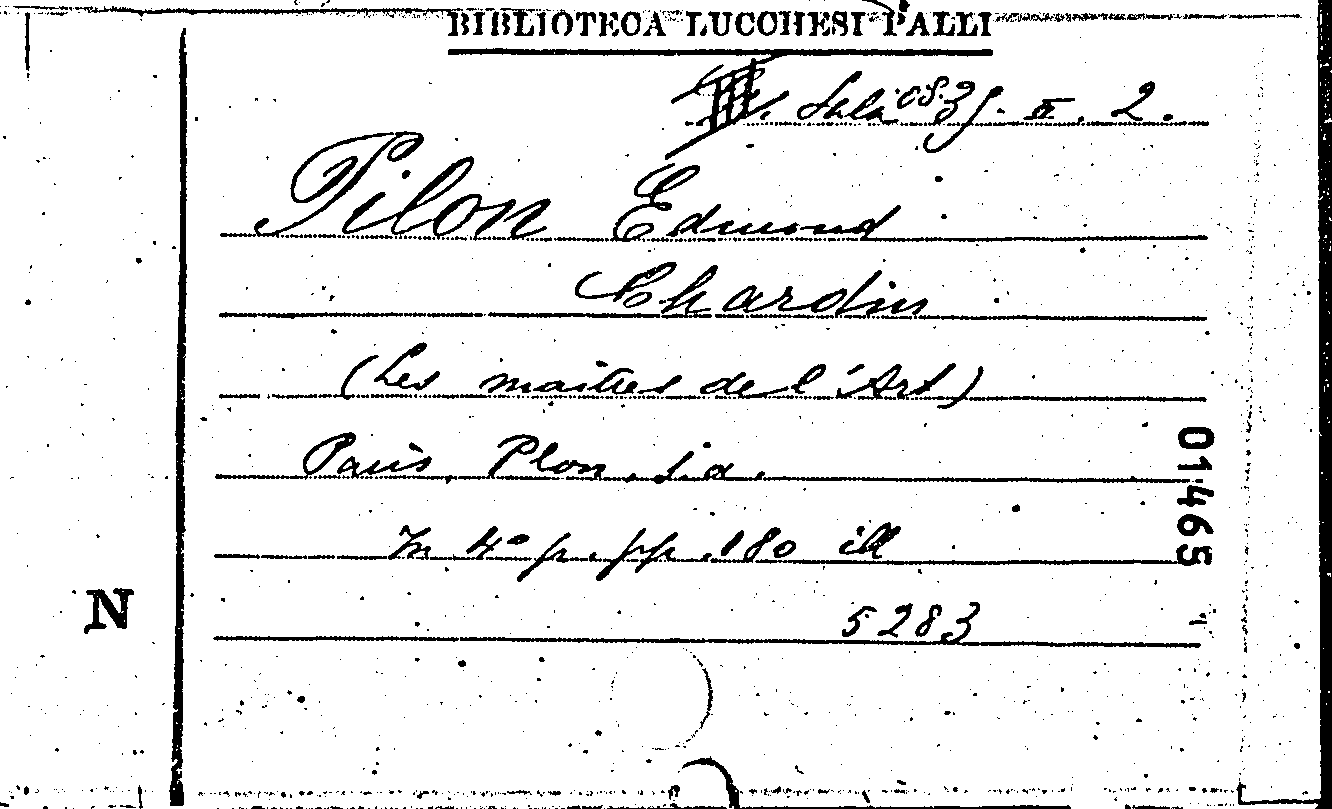 BIBLIOTECA LUCCHESI PALLI
Sala 39. II. 2.
Pilon Edmond
Chardin
(Les maîtres de l'Art)
Paris, Plon, s.a.
In 4° p. pp. 180 ill
5283
01465
N